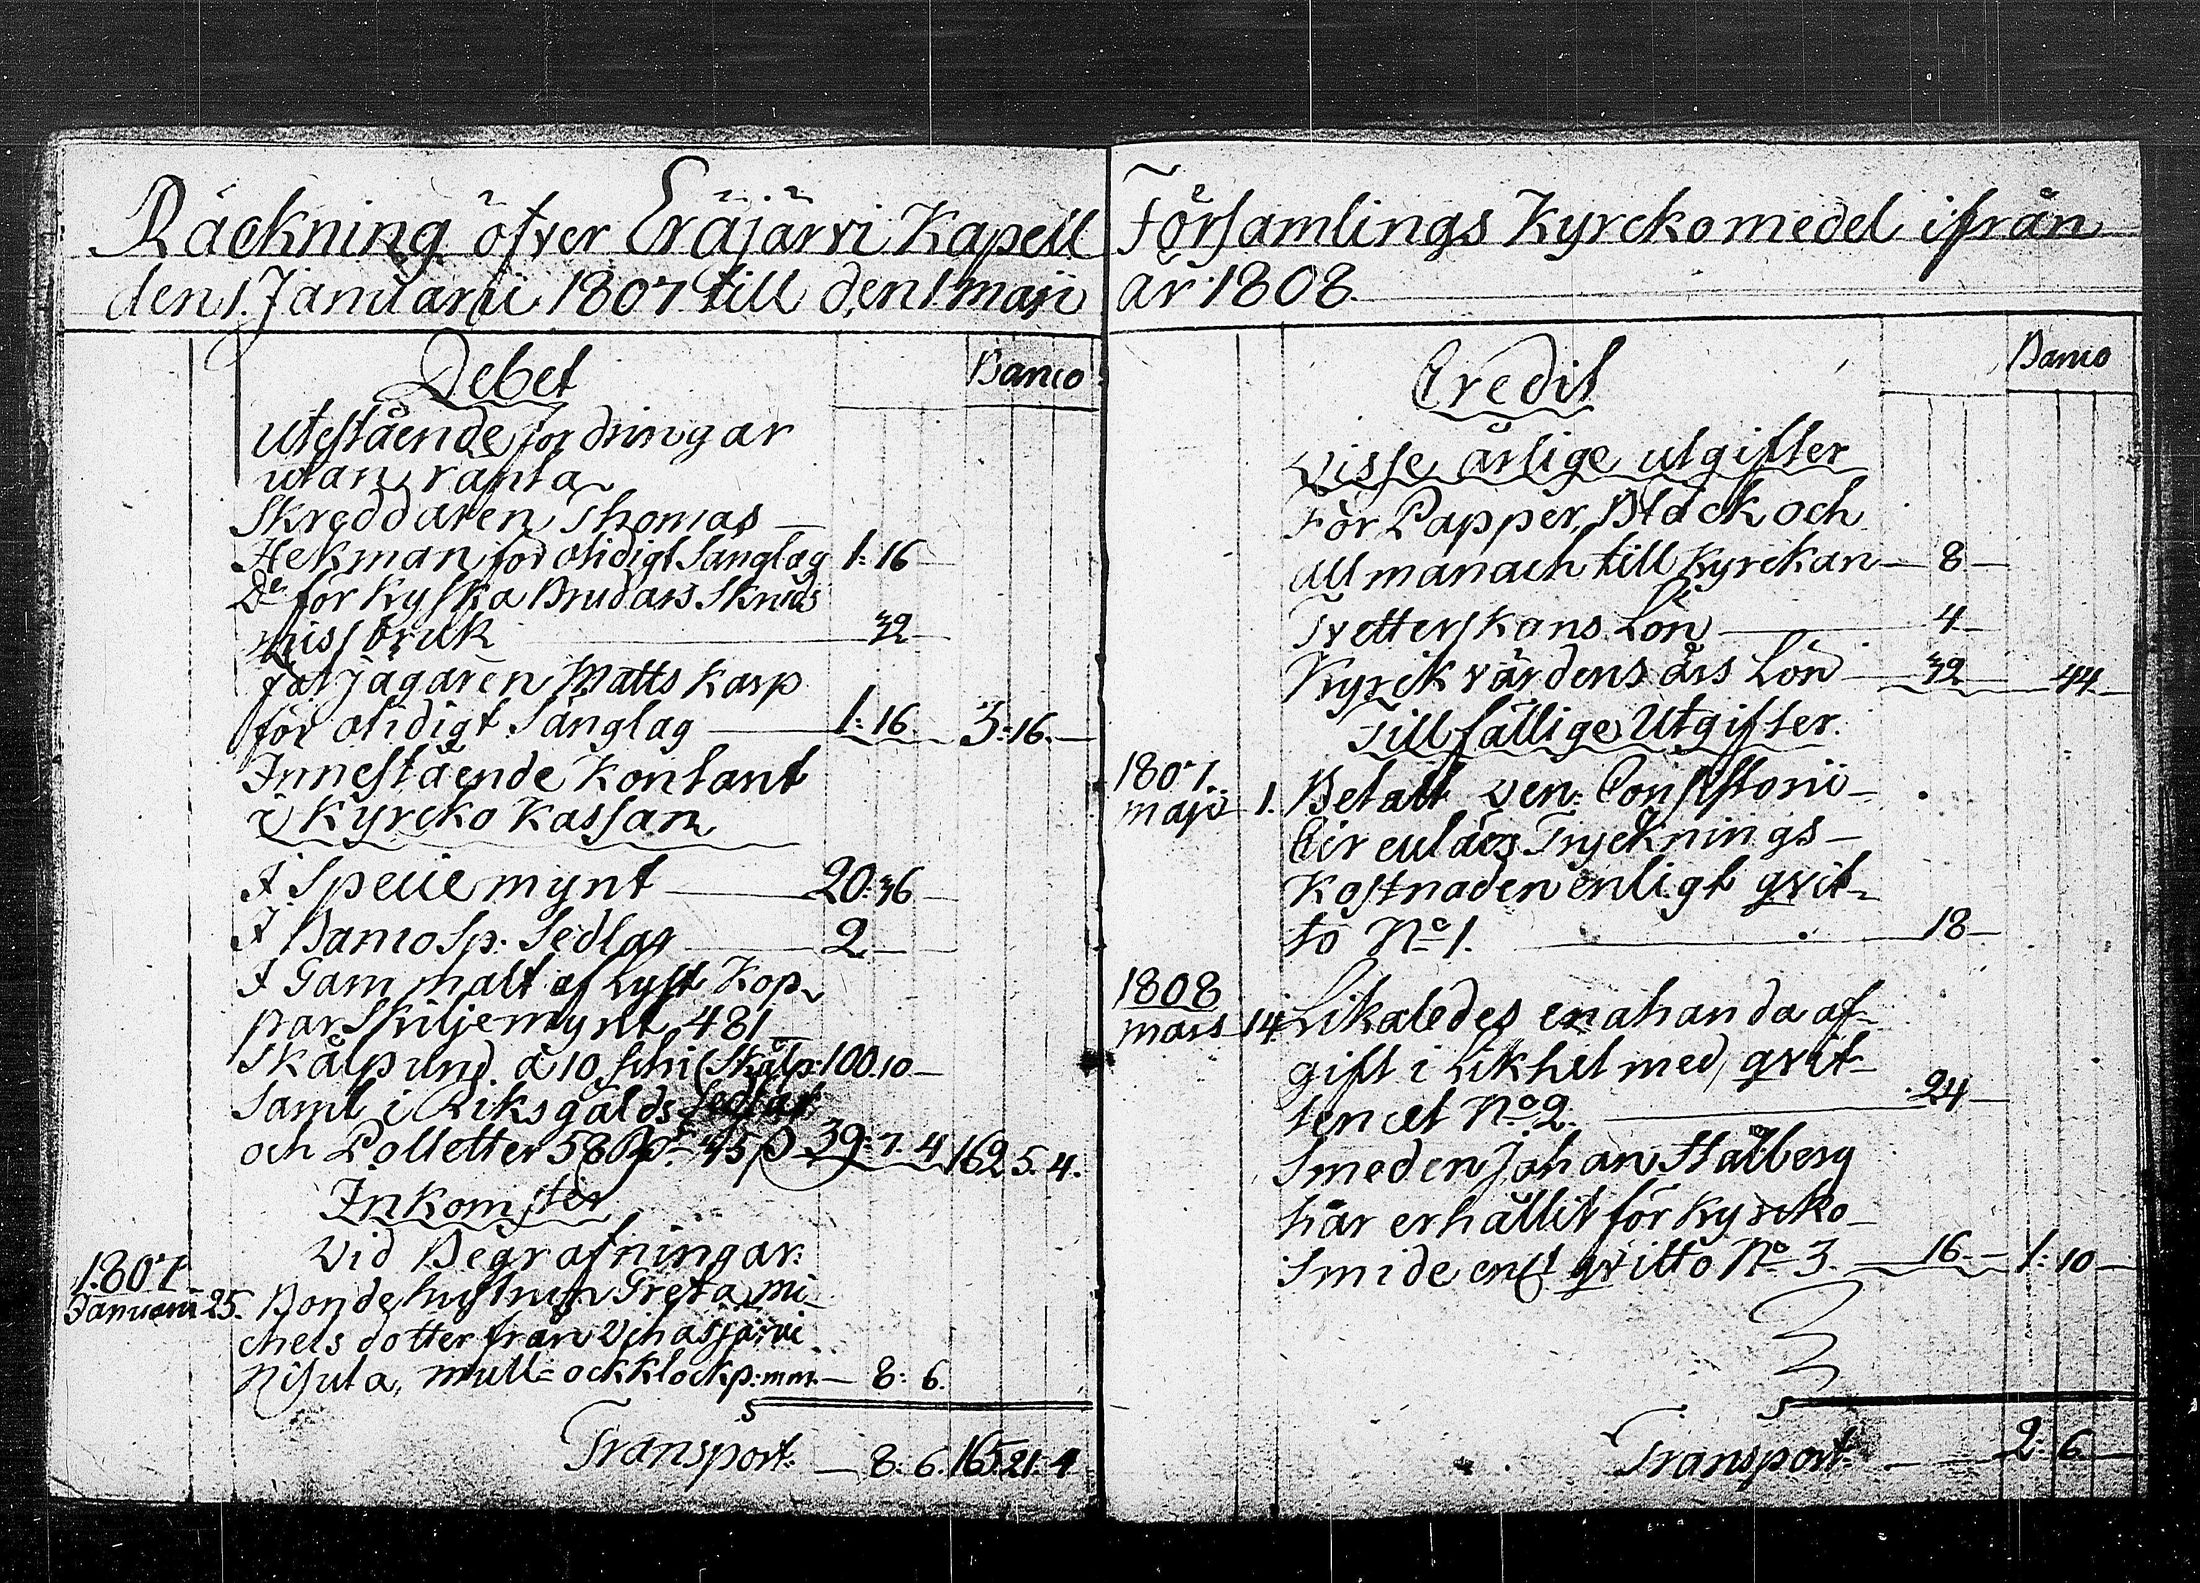 Räckning öfver Eräjärvi Kapell Församlings Kyrckomedel ifrån
den 1. Januarii 1807 till den 1 maji år 1808.
Debet
Banco
Utestående fordringar
utan ränta
Skreddaren Thomas
Hekman för otidigt Sänglag 1: 16
Do för Kyska Brudars Skruds
missbruk 32
Fot jägaren Matts Karp
för otidigt Sänglag 1: 16 3: 16.
Innestående Kontant
i Kyrcko Kassan
I Specie mynt 20: 36
I Banco Sp: Sedlar 2
I Gammalt aflyst Kop-
par Skiljemynt 481
Skålpund à 10 schi Skålp: 100. 10
Samt i Riksgälds Sedlar
och Polletter 58 45 39: 7. 4 162 5. 4.
Inkomster
Vid Begrafningar:
1807
Januarii 25. Bondehustrun Greta mi-
chels dotter från Vihasjärvi
Nisula, mull= ock klockp:mnr. 8: 6.
Transport: 8: 6. 165: 21: 4
Credit
Banco
Visse årlige utgifter
För Papper, Bläck och
Allmanach till Kyrckan 8
Tvetterskans Lön 4
Kyrckvärdens års Lön 32 44
Tillfällige Utgifter.
1807.
maji 1. Betalt Ven: Consistorii
Circulärs Trycknings-
Kostnaden enligt qvit-
to No 1. 18
1808
mars 14 Likaledes enahanda af-
gift i likhet med qvit-
tencet No 2. 24
Smeden Johan Stålberg
har erhållit för Kyrcko-
Smide enl. qvitto No 3. 16 1: 10
Transport: 2: 6.